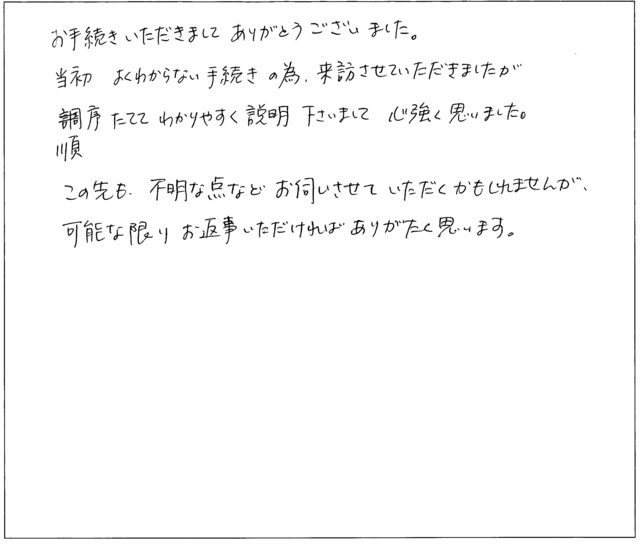 お手続きいただきまして ありがとうございました。
当初 よくわからない手続きの為、来訪させていただきましたが
調序たてて わかりやすく説明下さいまして 心強く思いました。
順
この先も、不明な点など お伺いさせて いただくかもしれませんが、
可能な限り お返事いただければ ありがたく思います。